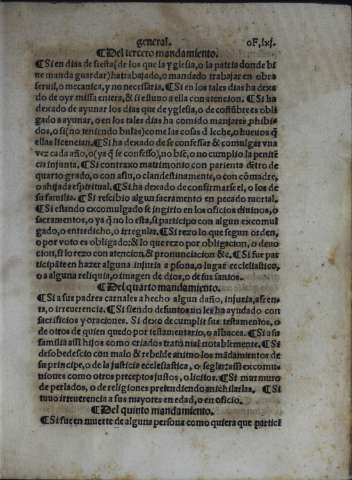 general. oF.lxj.
¶ Del tercero mandamiento.
¶ Si en dias de fiesta (de los que la yglesia, o la patria donde bi
ue manda guardar) ha trabajado, o mandado trabajar en obra
seruil, o mecanica, y no necessaria. ¶ Si en los tales dias ha dexa
do de oyr missa entera, & si estuuo a ella con atencion. ¶ Si ha
dexado de ayunar los dias que de yglesia, o de costũbre es obliga
do a ayunar, o en los tales dias ha comido manjares phibi
dos, o si (no teniendo bulas) come las cosas d̃ leche, o hueuos q̃
ellas licencian. ¶ Si ha dexado de se confessar & comulgar vna
vez cada año, o (ya q̃ se confesso) no biẽ, o no cumplio la penitẽ
cia injunta. ¶ Si contraxo matrimonio con parienta dẽtro de
quarto grado, o con afin, o clandestinamente, o con cõmadre,
o ahijada espiritual. ¶ Si ha dexado de confirmarse el, o los de
su familia. ¶ Si rescibio algun sacramento en pecado mortal.
¶ Si estando excomulgado se ingirio en los oficios diuinos, o
sacramentos, o ya q̃ no lo esta, si participo con algun excomul
gado, o entredicho, o irregular. ¶ Si rezo lo que segun orden,
o por voto es obligado: & lo que rezo por obligacion, o deuo
cion, si lo rezo con atencion, & pronunciacion &c. ¶ Si fue par
ticipãte en hazer alguna injuria a psona, o lugar ecclesiastico,
o a alguna reliquia, o imagen de dios, o de sus santos.
¶ Del quarto mandamiento.
¶ Si a sus padres carnales a hecho algun daño, injuria, afren
ta, o irreuerencia. ¶ Si siendo defuntos no les ha ayudado con
sacrificios y oraciones. Si dexo de cumplir sus testamentos, o
de otros de quien quedo por testamentario, o albacea. ¶ Si a su
familia assi hijos como criados trato mal notablemente. ¶ Si
desobedescio con malo & rebelde animo los mãdamientos de
su principe, o de la justicia ecclesiastica, o seglar: assi excomu
niones como otros preceptos justos, o licitos. ¶ Si murmuro
de perlados, o de religiones pretendiendo anichilarlas. ¶ Si
tuuo irreuerencia a sus mayores en edad, o en oficio.
¶ Del quinto mandamiento.
¶ Si fue en muerte de alguna persona como quiera que partici